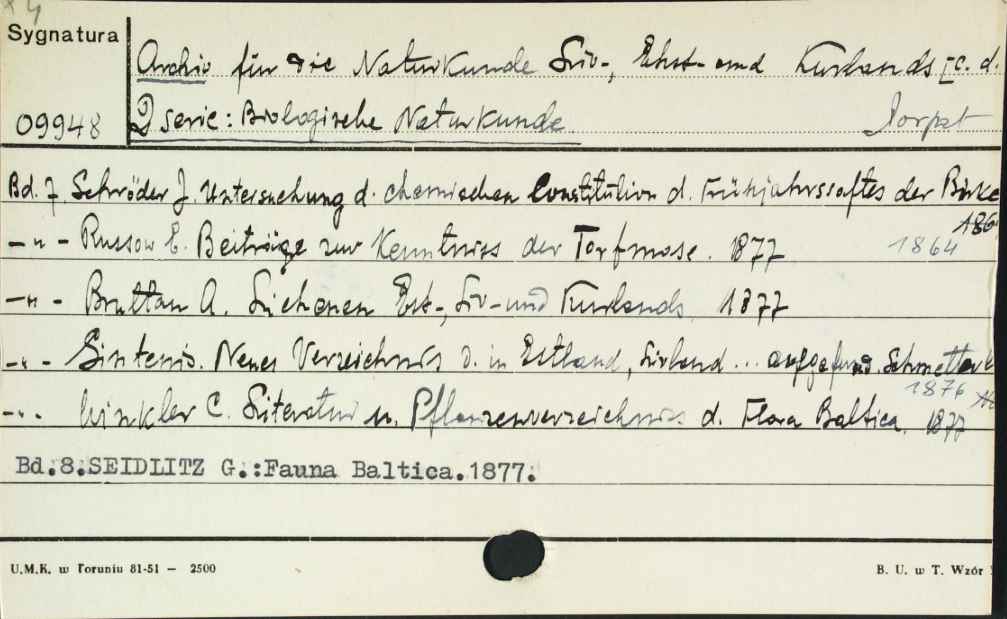 Sygnatura
Archiv für die Naturkunde Liv-, Ehst- und Kurlands [c. d.
09948 2 serie: Biologische Naturkunde. Dorpat
Bd. 7. Schröder J. Untersuchung d. chemischen Constitution d. Frühjahrssaftes der Birke
186
— " — Russow E. Beiträge zur Kenntniss der Torfmose. 1877 1864
— " — Bruttan A. Lichenen Est-, Liv- und Kurlands. 1877
— " — Sintenis. Neues Verzeichnis d. in Estland, Livland ... aufgefund. Schmetterl
1876
— " — Winkler C. Literatur u. Pflanzenverzeichnis d. Flora Baltica. 1877
Bd.8.SEIDLITZ G.:Fauna Baltica.1877.
U.M.K. w Toruniu 81-51 — 2500 B. U. w T. Wzór